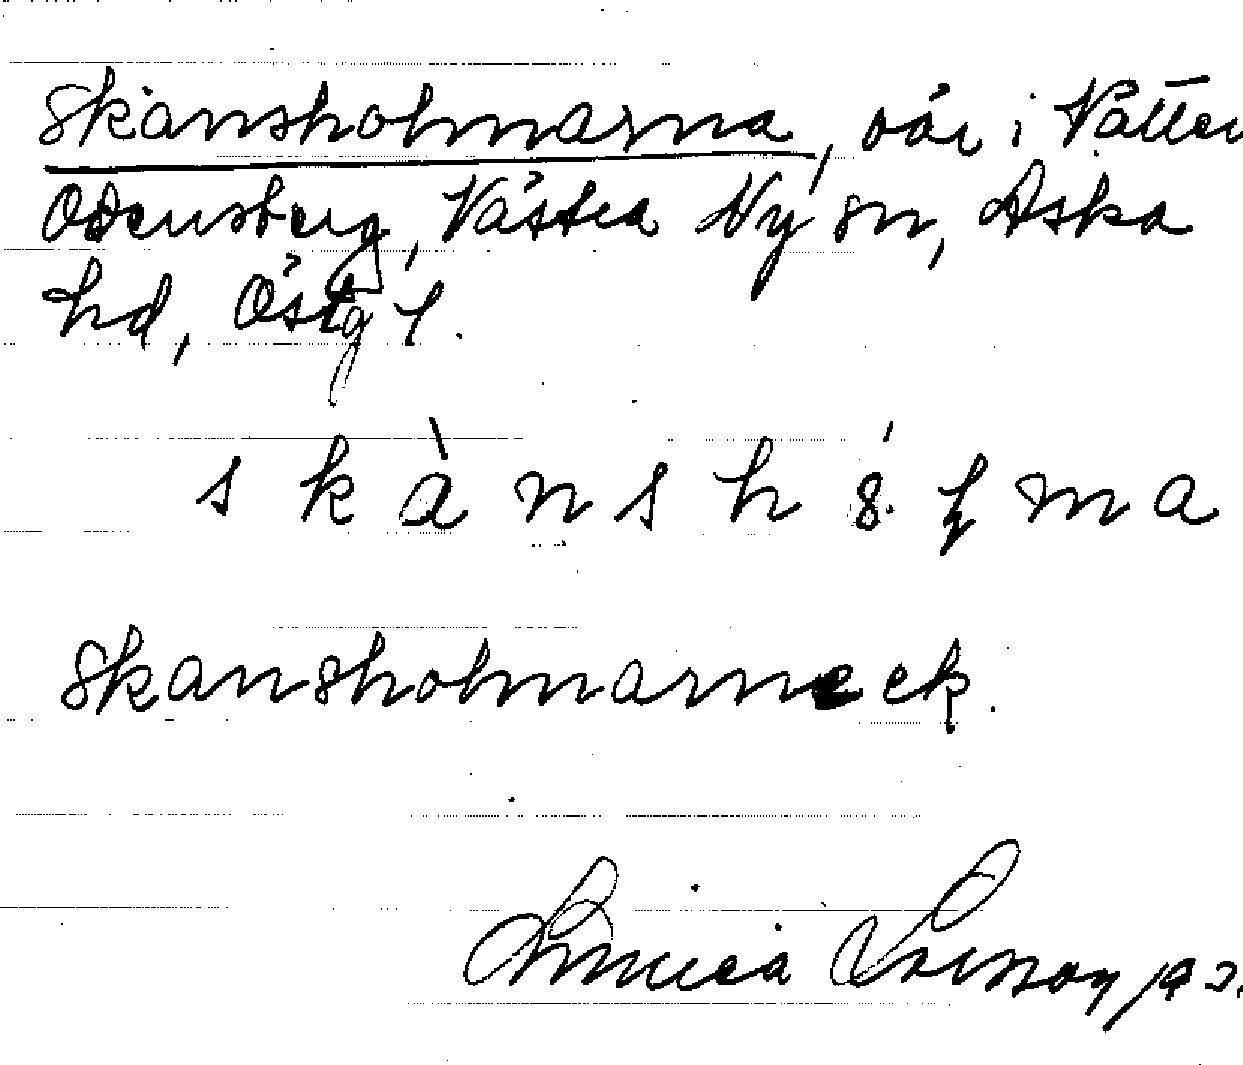 Skansholmarna, öar i Vätter
Odensberg, Västra Ny sn, Aska
hd, Östg l.
s k à n s h ó l m a
Skansholmarne ek.
Larsson, 193.